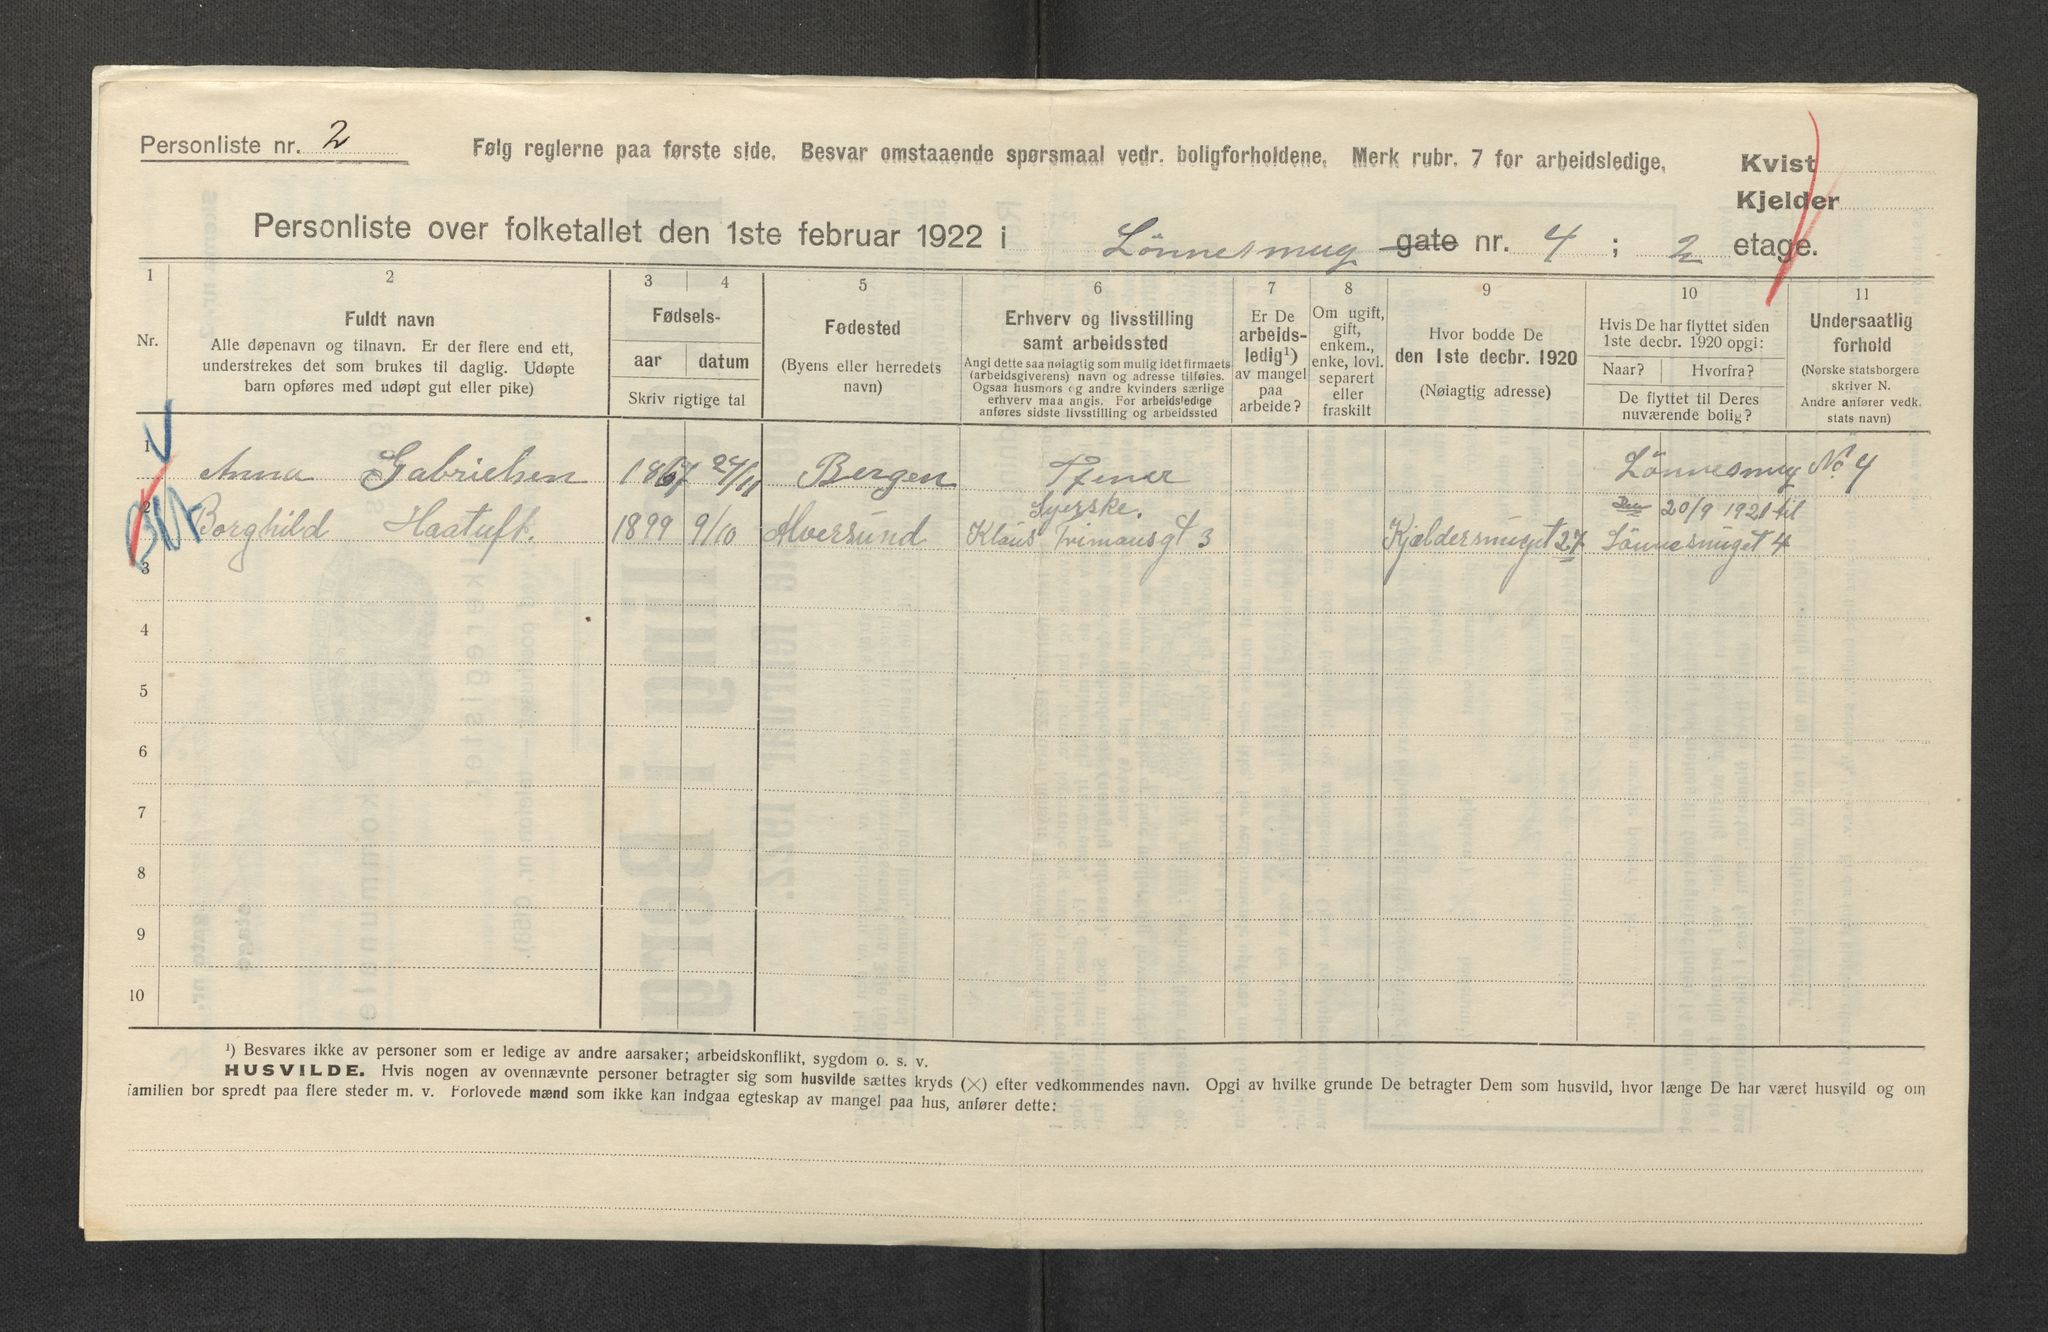 Personliste nr. 2
Følg reglerne paa første side. Besvar omstaaende spørsmaal vedr. boligforholdene. Merk rubr. 7 for arbeidsledige.
Kvist
Kjelder
Personliste over folketallet den 1ste februar 1922 i Lønnesmug gate nr. 4 ; 2 etage.
1 2 3 4 5 6 7 8 9 10 11
Nr.
Fuldt navn
Alle døpenavn og tilnavn. Er der flere end ett,
understrekes det som brukes til daglig. Udøpte
barn opføres med udøpt gut eller pike)
Fødsels-
aar datum
Skriv rigtige tal
Fødested
(Byens eller herredets
navn)
Erhverv og livsstilling
samt arbeidssted
Angi dette saa nøiagtig som mulig idet firmaets
(arbeidsgiverens) navn og adresse tilføies.
Ogsaa husmors og andre kvinders særlige
erhverv maa angis. For arbeidsledige
anføres sidste livsstilling og arbeidssted
Er De
arbeids-
ledig¹)
av mangel
paa
arbeide?
Om ugift,
gift,
enkem.,
enke, lovl.
separert
eller
fraskilt
Hvor bodde De
den 1ste decbr. 1920
(Nøiagtig adresse)
Hvis De har flyttet siden
1ste decbr. 1920 opgi:
Naar? Hvorfra?
De flyttet til Deres
nuværende bolig?
Undersaatlig
forhold
(Norske statsborgere
skriver N.
Andre anfører vedk.
stats navn)
1 Anna Gabrielsen 1867 24/11 Bergen Tjener Lønnesmug No 4
2 Borghild Haatuft. 1899 9/10 Alversund Syerske. Kjældersmuget 27 Den 20/9 1921 til
Klaus gt 3 Lønnesmuget 4
3
4
5
6
7
8
9
10
¹) Besvares ikke av personer som er ledige av andre aarsaker; arbeidskonflikt, sygdom o. s. v.
HUSVILDE. Hvis nogen av ovennævnte personer betragter sig som husvilde sættes kryds (×) efter vedkommendes navn. Opgi av hvilke grunde De betragter Dem som husvild, hvor længe De har været husvild og om
familien bor spredt paa flere steder m. v. Forlovede mænd som ikke kan indgaa egteskap av mangel paa hus, anfører dette: